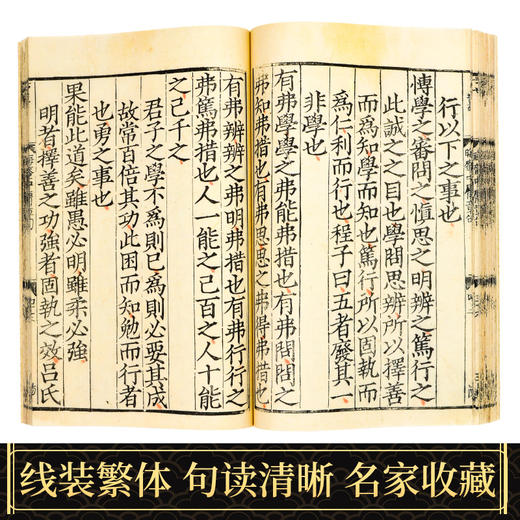 行以下之事也
博學之審問之慎思之明辨之篤行之
此誠之之目也學問思辨所以擇善
而爲知學而知也篤行所以固執而
爲仁利而行也程子曰五者發其一
非學也
有弗學學之弗能弗措也有弗問問之
弗知弗措也有弗思思之弗得弗措也
有弗辨辨之弗明弗措也有弗行行之
弗篤弗措也人一能之己百之人十能
之己千之
君子之學不爲則已爲則必要其成
故常百倍其功此困而知勉而行者
也勇之事也
果能此道矣雖愚必明雖柔必強
明者擇善之功強者固執之效呂氏
线装繁体 句读清晰 名家收藏